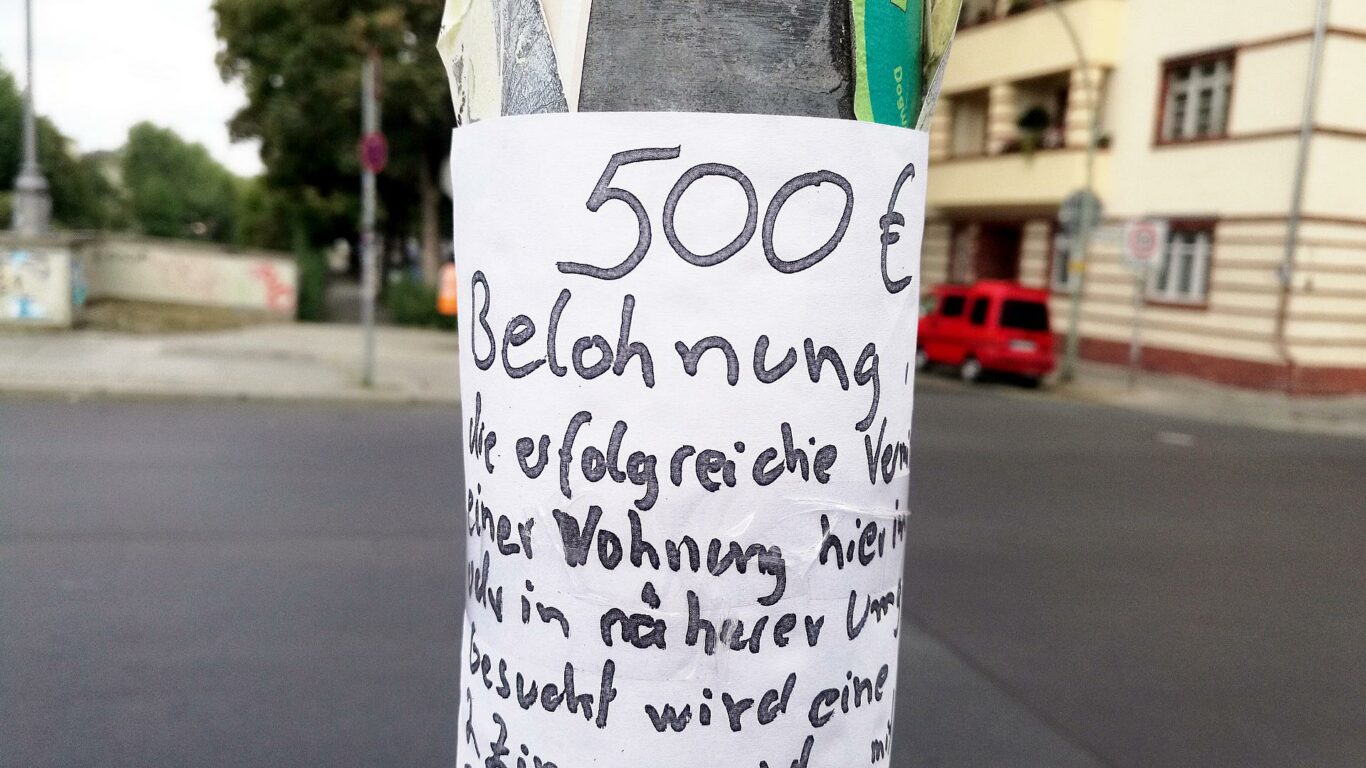 500 €
Belohnung,
die erfolgreiche
einer Wohnung hier in
oder in näherer
Gesucht wird eine
2